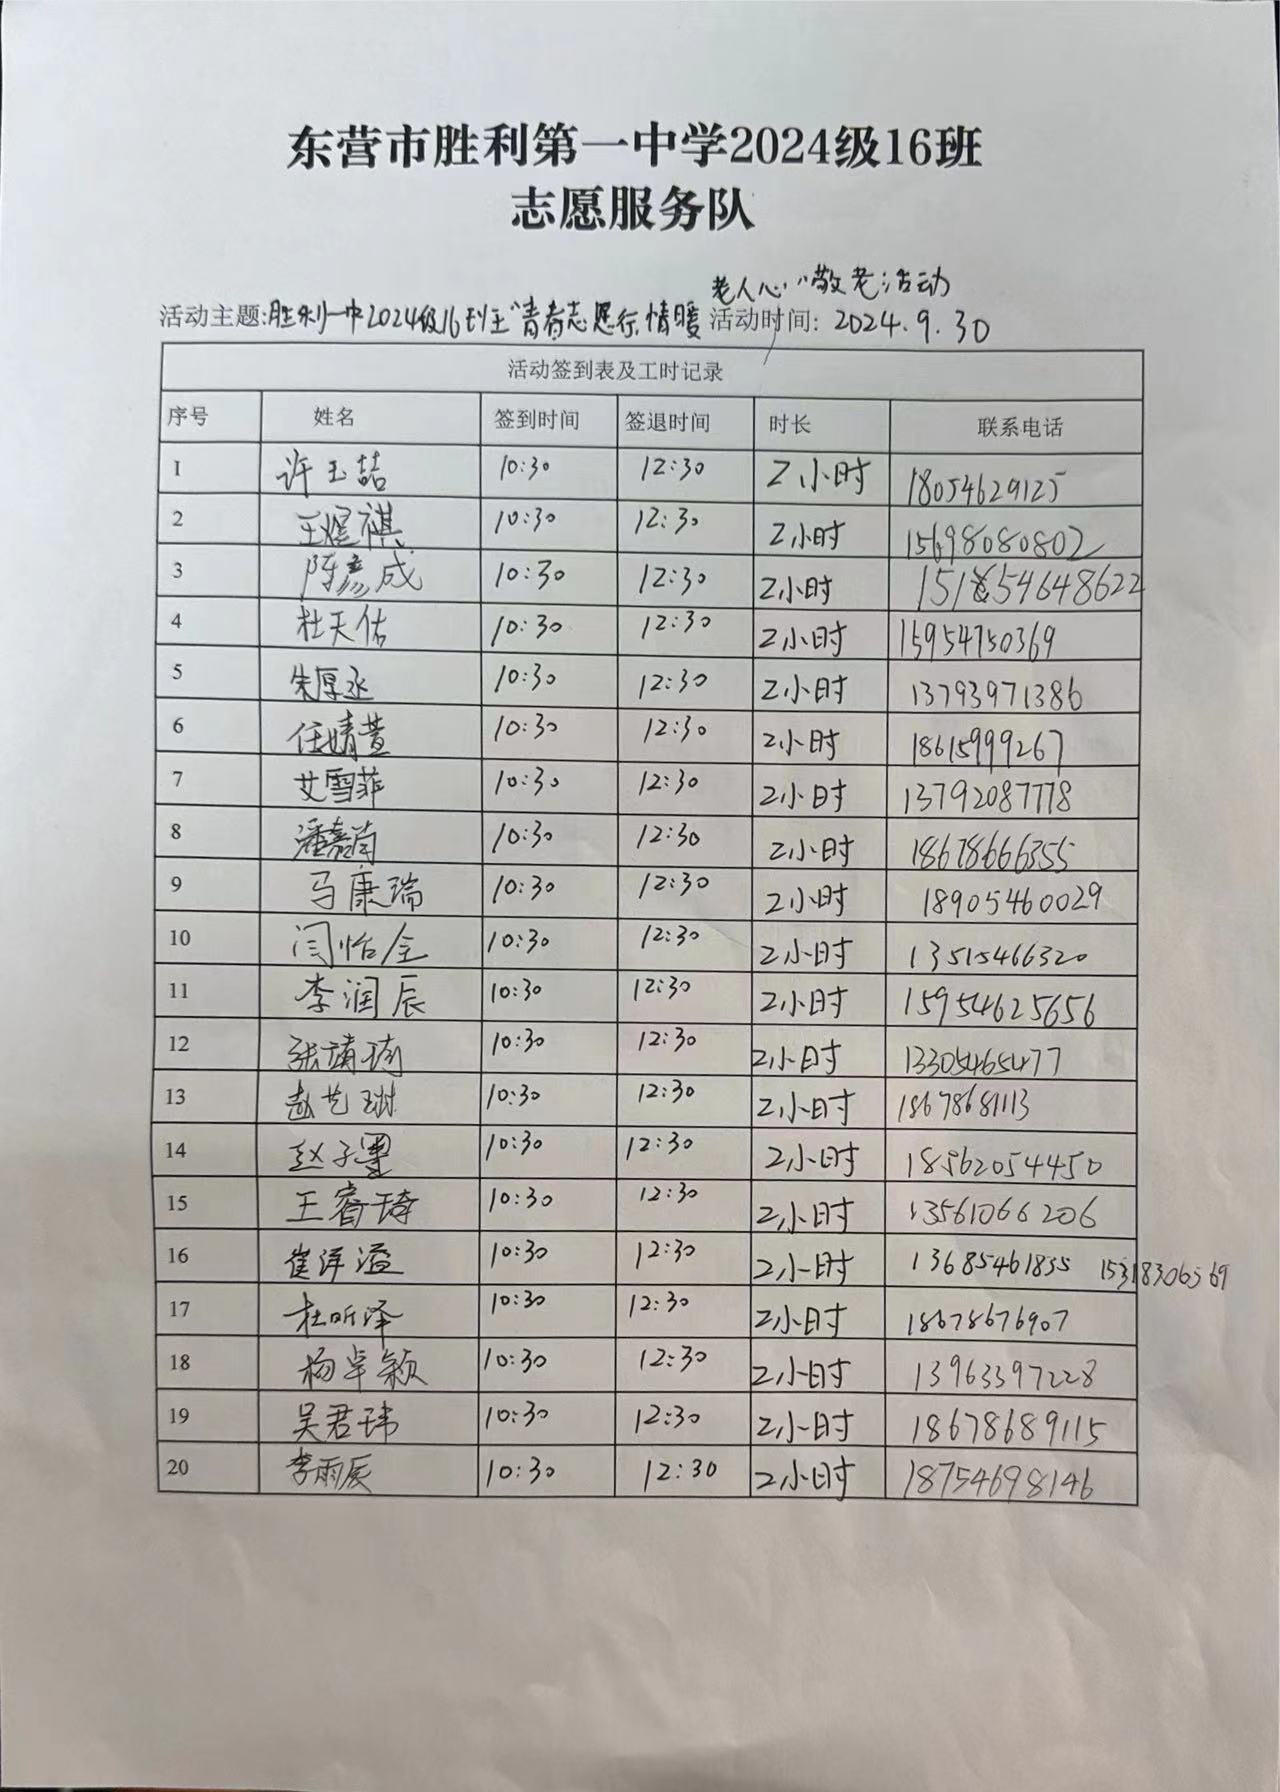 东营市胜利第一中学2024级16班
志愿服务队
活动主题:胜利一中2024级16班"青春志愿行,情暖老人心"敬老活动 活动时间: 2024.9.30
活动签到表及工时记录
序号 姓名 签到时间 签退时间 时长 联系电话
1 许玉喆 10:30 12:30 2小时 18054629125
2 王煜祺 10:30 12:30 2小时 15698080802
3 陈彦成 10:30 12:30 2小时
4 杜天佑 10:30 12:30 2小时 15954750369
5 朱厚丞 10:30 12:30 2小时 13793971386
6 任婧萱 10:30 12:30 2小时 18615999267
7 艾雪菲 10:30 12:30 2小时 13792087778
8 潘嘉 10:30 12:30 2小时 18678666355
9 马康瑞 10:30 12:30 2小时 18905460029
10 闫怡全 10:30 12:30 2小时 13515466320
11 李润辰 10:30 12:30 2小时 15954625656
12 张靖琦 10:30 12:30 2小时 13305465477
13 赵艺琳 10:30 12:30 2小时 18678681113
14 赵子墨 10:30 12:30 2小时 18562054450
15 王睿琦 10:30 12:30 2小时 13561066206
16 崔洋溢 10:30 12:30 2小时 13685461835 15318306569
17 杜昕泽 10:30 12:30 2小时 18678676907
18 杨卓颖 10:30 12:30 2小时 13963397228
19 吴君玮 10:30 12:30 2小时 18678689115
20 李雨辰 10:30 12:30 2小时 18754698146